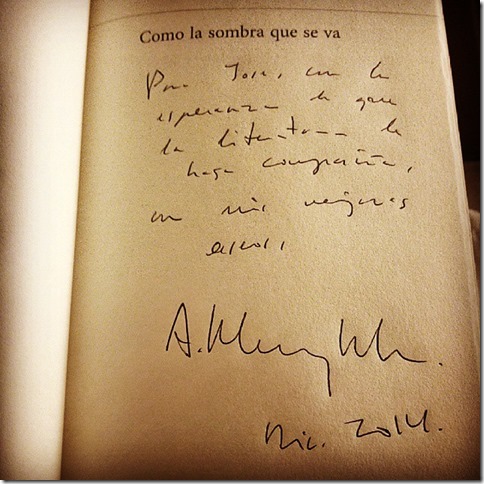 Como la sombra que se va
Para Jose, con la
esperanza de que
la literatura le
haga compañía,
con mis mejores
deseos,
A. Muñoz Molina.
Dic. 2014.